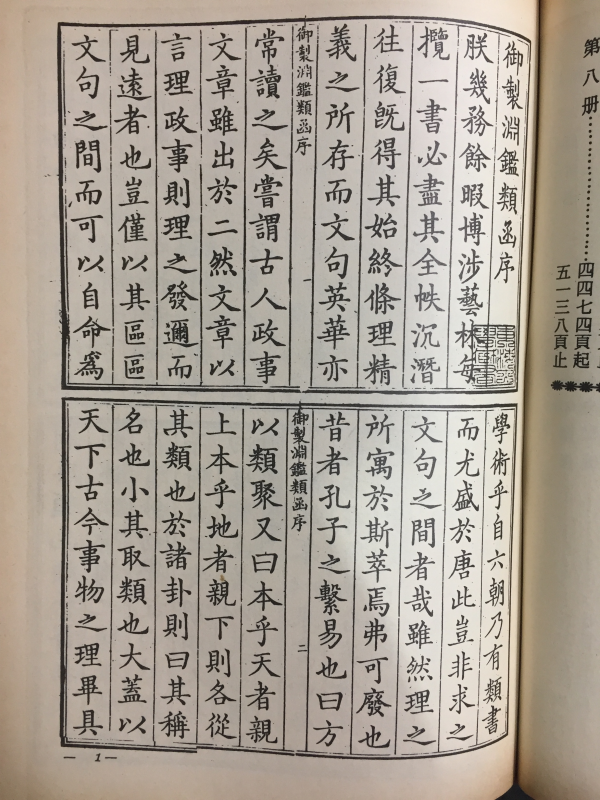 御製淵鑑類函序
朕幾務餘暇博涉藝林每
攬一書必盡其全帙沉潛
往復旣得其始終條理精
義之所存而文句英華亦
御製淵鑑類函序
一
常讀之矣嘗謂古人政事
文章雖出於二然文章以
言理政事則理之發邇而
見遠者也豈僅以其區區
文句之間而可以自命爲
學術乎自六朝乃有類書
而尤盛於唐此豈非求之
文句之間者哉雖然理之
所寓於斯萃焉弗可廢也
昔者孔子之繫易也曰方
御製淵鑑類函序
二
以類聚又曰本乎天者親
上本乎地者親下則各從
其類也於諸卦則曰其稱
名也小其取類也大蓋以
天下古今事物之理畢具
— 1 —
第八册
四四七四頁起
五一三八頁止